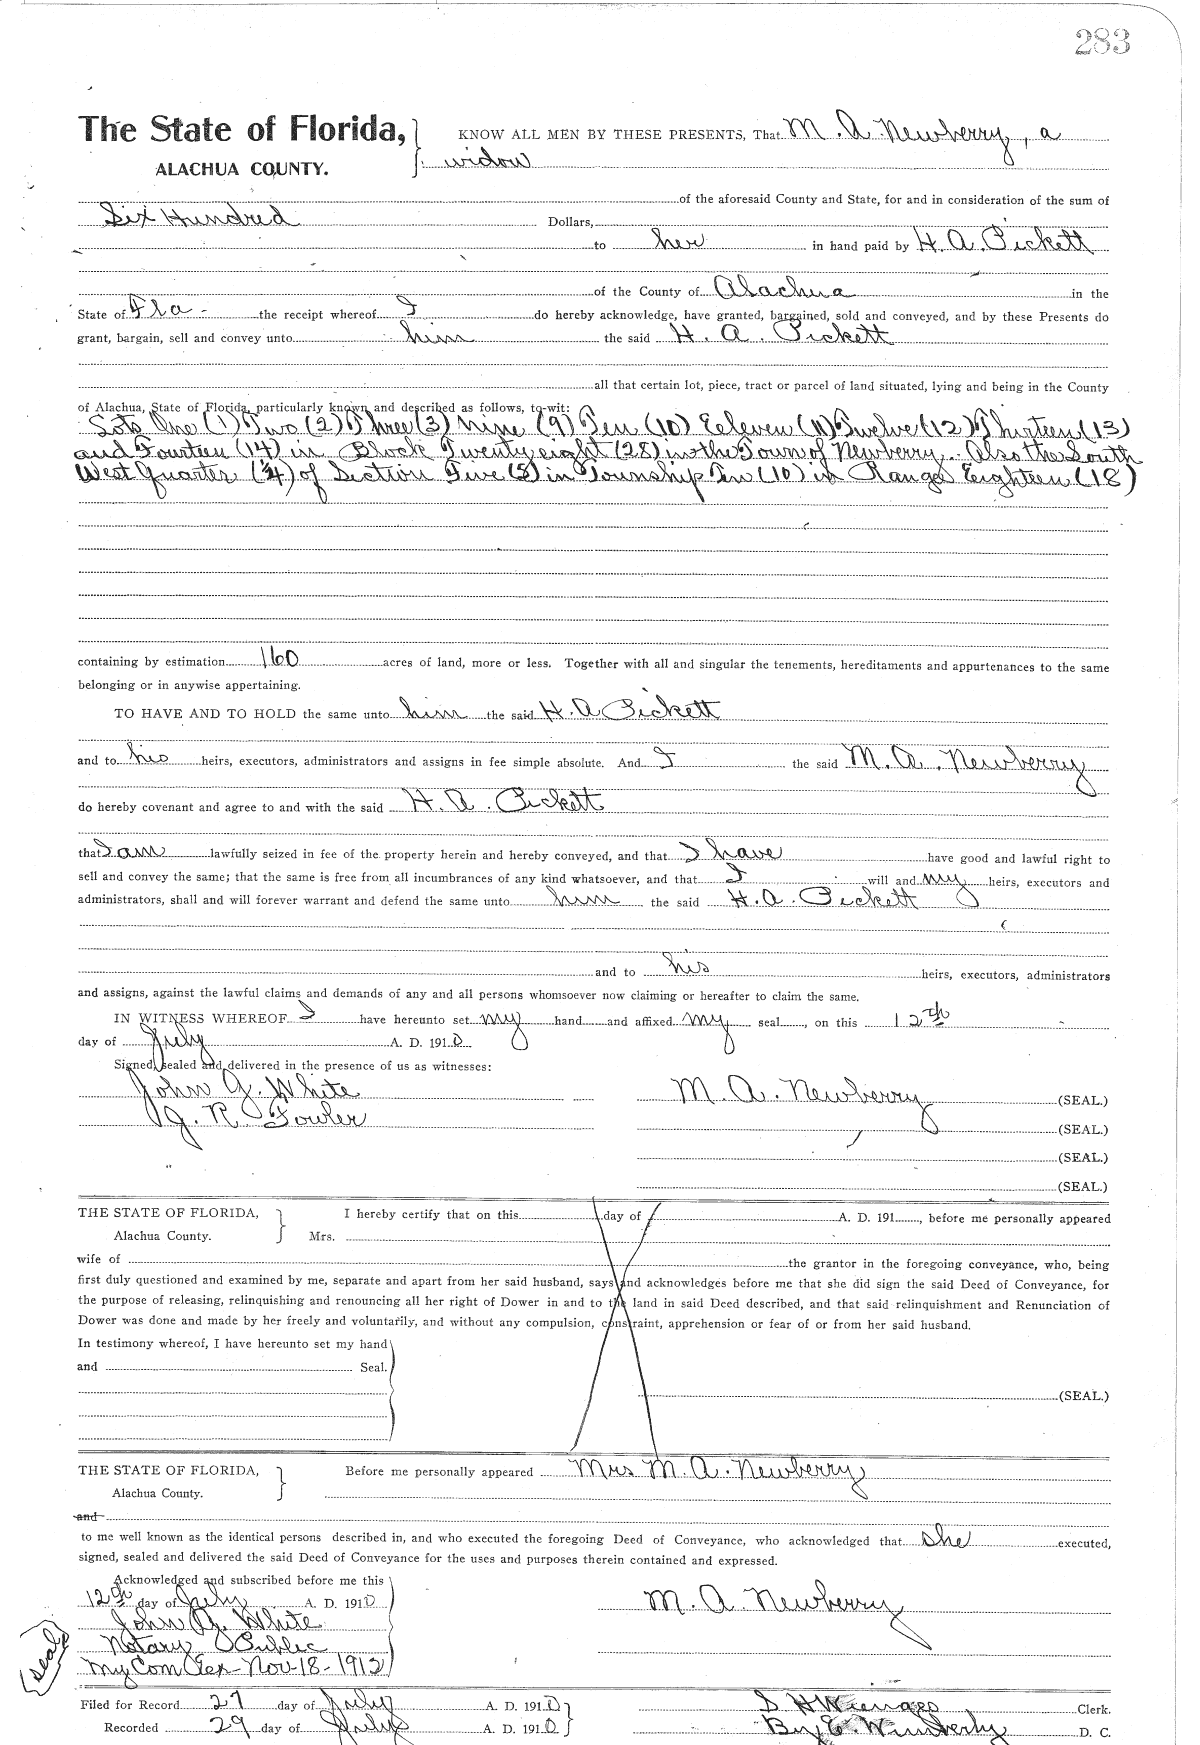 283
The State of Florida, KNOW ALL MEN BY THESE PRESENTS, That M. A. Newberry, a
ALACHUA COUNTY. widow
of the aforesaid County and State, for and in consideration of the sum of
Six Hundred Dollars,
to her in hand paid by H. A. Pickett
of the County of Alachua in the
State of Fla - the receipt whereof I do hereby acknowledge, have granted, bargained, sold and conveyed, and by these Presents do
grant, bargain, sell and convey unto him the said H. A. Pickett
all that certain lot, piece, tract or parcel of land situated, lying and being in the County
of Alachua, State of Florida, particularly known and described as follows, to-wit:
Lots One (1) Two (2) Three (3) Nine (9) Ten (10) Eeleven (11) Twelve (12) Thirteen (13)
and Fourteen (14) in Block Twenty eight (28) in the Town of Newberry. Also the South
West Quarter (1/4) of Section Five (5) in Township Ten (10) in Range Eighteen (18)
containing by estimation 160 acres of land, more or less. Together with all and singular the tenements, hereditaments and appurtenances to the same
belonging or in anywise appertaining.
TO HAVE AND TO HOLD the same unto him the said H. A Pickett
and to his heirs, executors, administrators and assigns in fee simple absolute. And I the said M. A. Newberry
do hereby covenant and agree to and with the said H. A. Pickett
that I am lawfully seized in fee of the property herein and hereby conveyed, and that I have have good and lawful right to
sell and convey the same; that the same is free from all incumbrances of any kind whatsoever, and that I will and my heirs, executors and
administrators, shall and will forever warrant and defend the same unto him the said H. A. Pickett
and to his heirs, executors, administrators
and assigns, against the lawful claims and demands of any and all persons whomsoever now claiming or hereafter to claim the same.
IN WITNESS WHEREOF I have hereunto set my hand and affixed my seal, on this 12th
day of July A. D. 1910
Signed, sealed and delivered in the presence of us as witnesses:
John G. White M. A. Newberry (SEAL.)
J. R. Fowler (SEAL.)
(SEAL.)
(SEAL.)
THE STATE OF FLORIDA, I hereby certify that on this day of A. D. 191, before me personally appeared
Alachua County. Mrs.
wife of the grantor in the foregoing conveyance, who, being
first duly questioned and examined by me, separate and apart from her said husband, says and acknowledges before me that she did sign the said Deed of Conveyance, for
the purpose of releasing, relinquishing and renouncing all her right of Dower in and to the land in said Deed described, and that said relinquishment and Renunciation of
Dower was done and made by her freely and voluntarily, and without any compulsion, constraint, apprehension or fear of or from her said husband.
In testimony whereof, I have hereunto set my hand
and Seal.
(SEAL.)
THE STATE OF FLORIDA, Before me personally appeared Mrs M. A. Newberry
Alachua County.
and
to me well known as the identical persons described in, and who executed the foregoing Deed of Conveyance, who acknowledged that she executed,
signed, sealed and delivered the said Deed of Conveyance for the uses and purposes therein contained and expressed.
Acknowledged and subscribed before me this
12th day of July A. D. 1910 M. A. Newberry
John G. White
Notary Public
(seal) My Com Ex - Nov - 18 - 1912
Filed for Record 27 day of July A. D. 1910 S. H Wienges Clerk.
Recorded 29 day of July A. D. 1910 By E. Wimberly D. C.